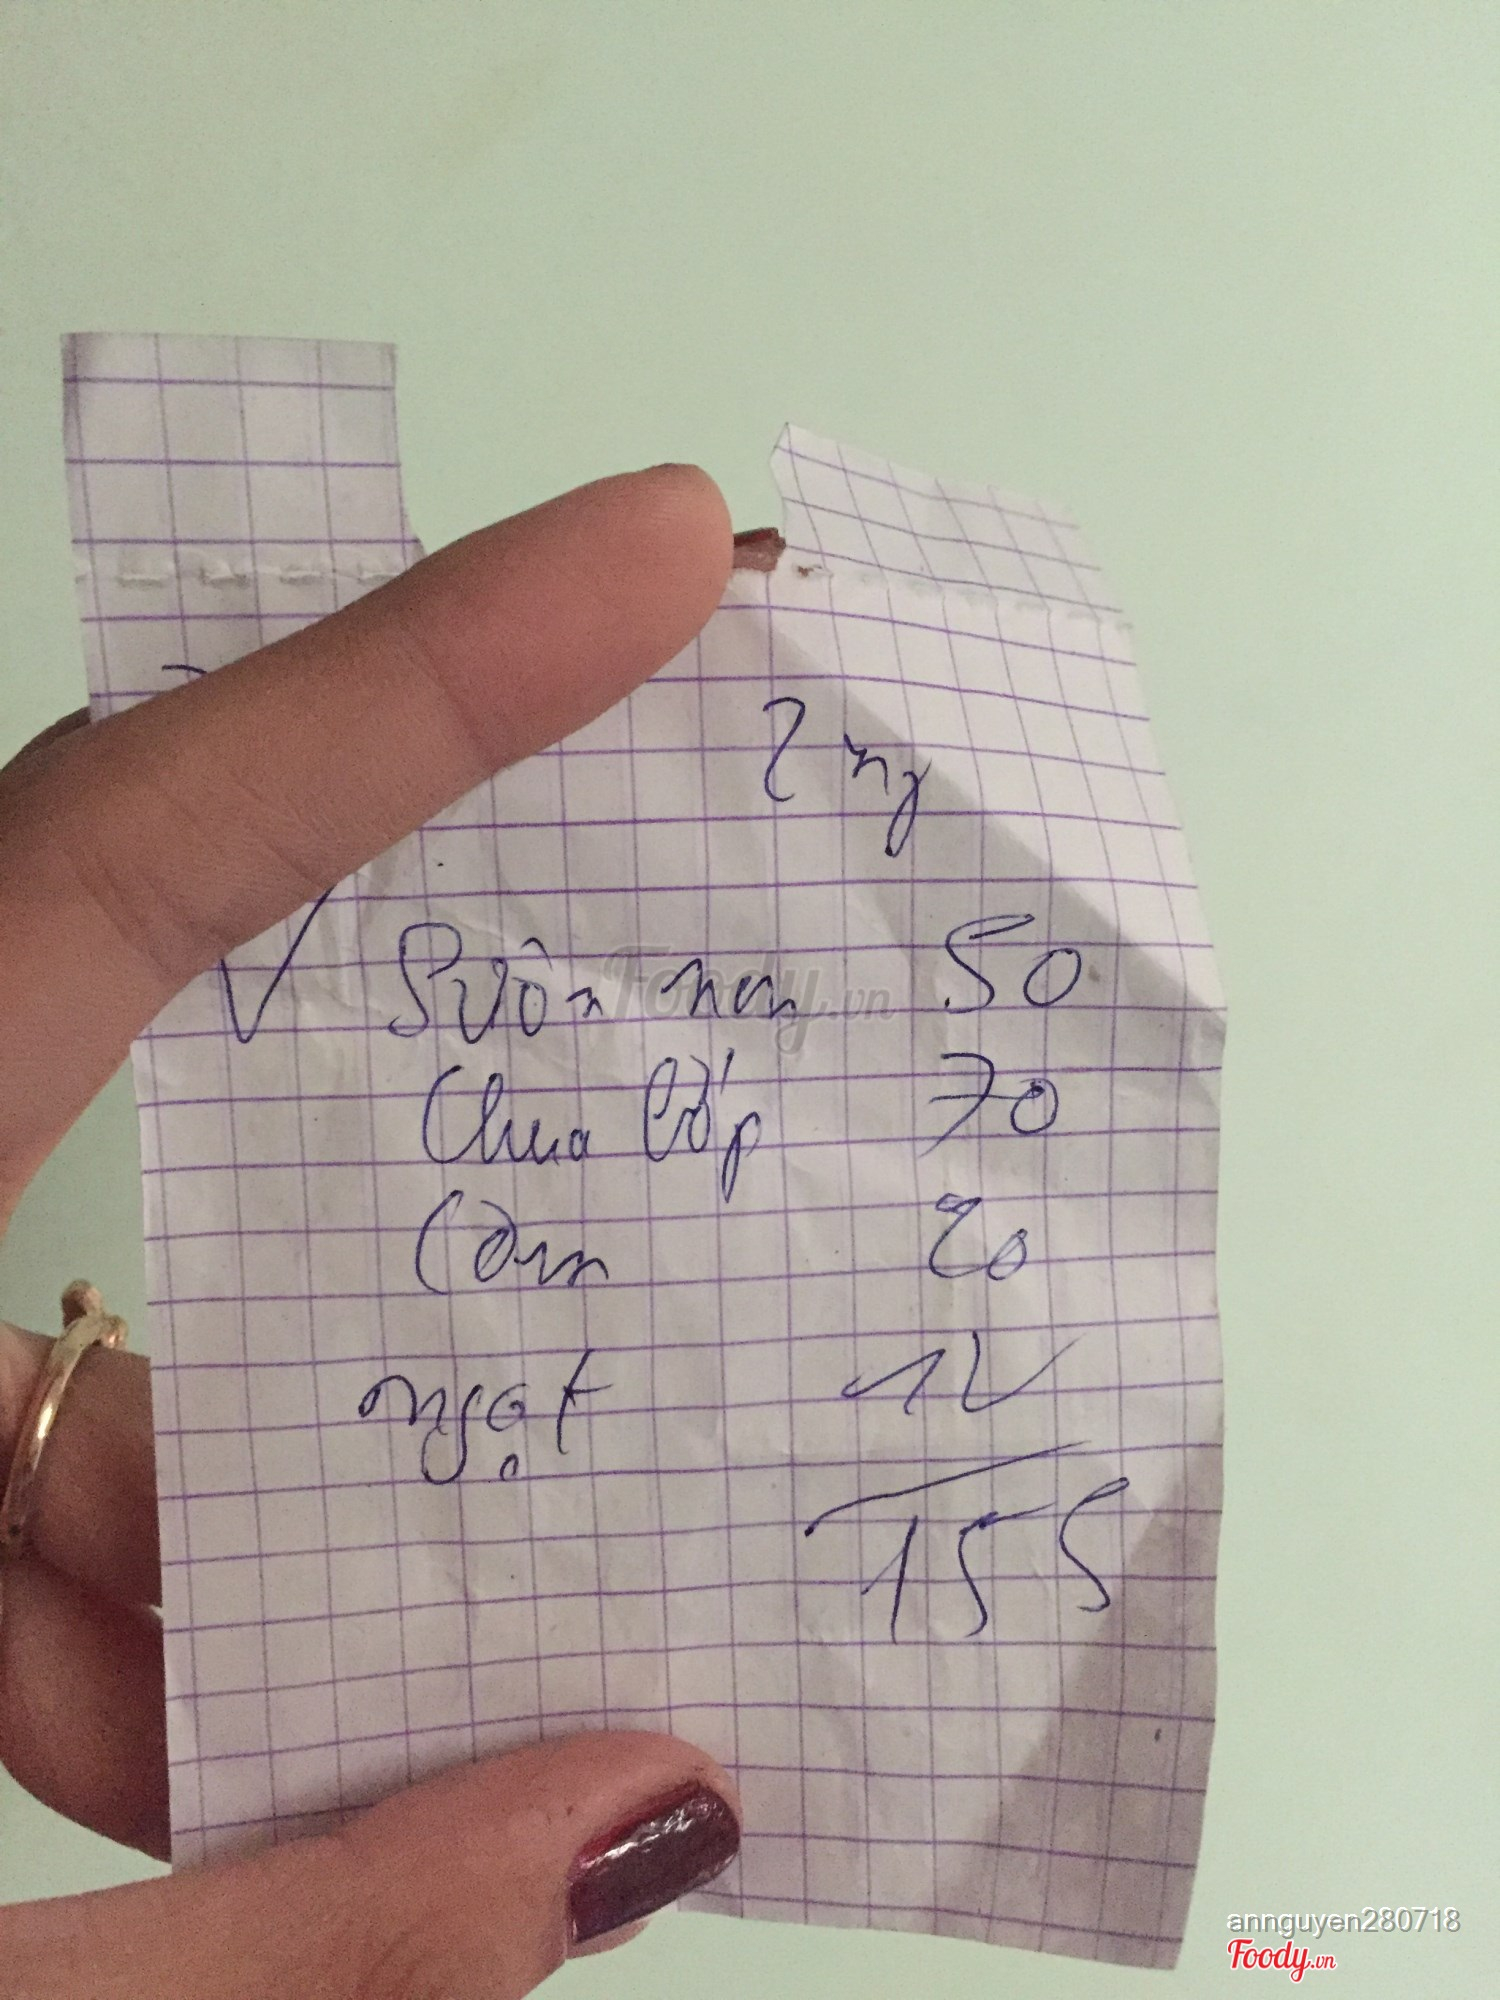 2 ng
Sườn non 50
Chua lớp 70
Cơm 20
ngọt 1L
155
Foody.vn
annguyen280718
Foody.vn